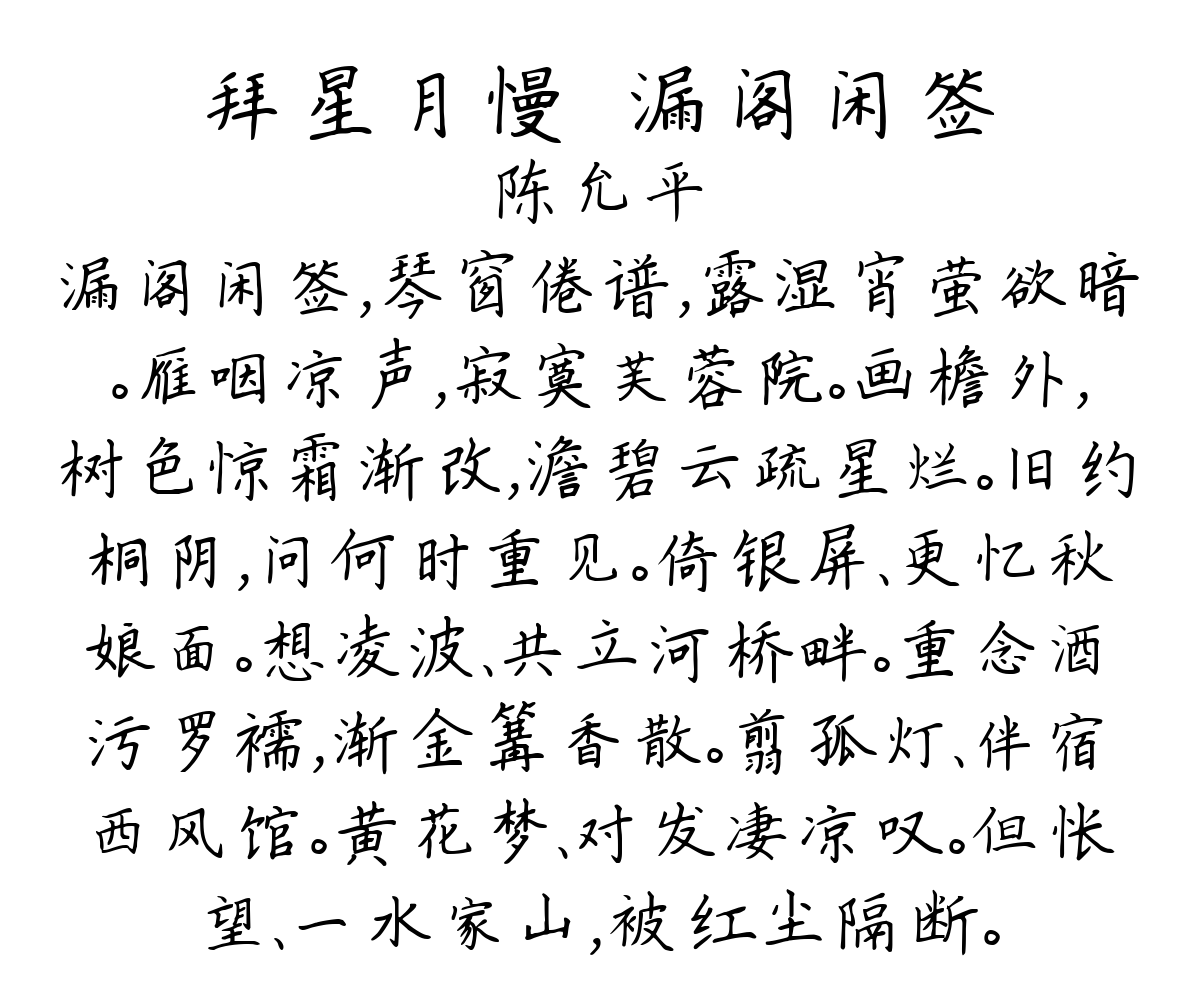 拜星月慢 漏阁闲签
陈允平
漏阁闲签,琴窗倦谱,露湿宵萤欲暗
。雁咽凉声,寂寞芙蓉院。画檐外,
树色惊霜渐改,澹碧云疏星烂。旧约
桐阴,问何时重见。倚银屏、更忆秋
娘面。想凌波、共立河桥畔。重念酒
污罗襦,渐金篝香散。翦孤灯、伴宿
西风馆。黄花梦、对发凄凉叹。但怅
望、一水家山,被红尘隔断。